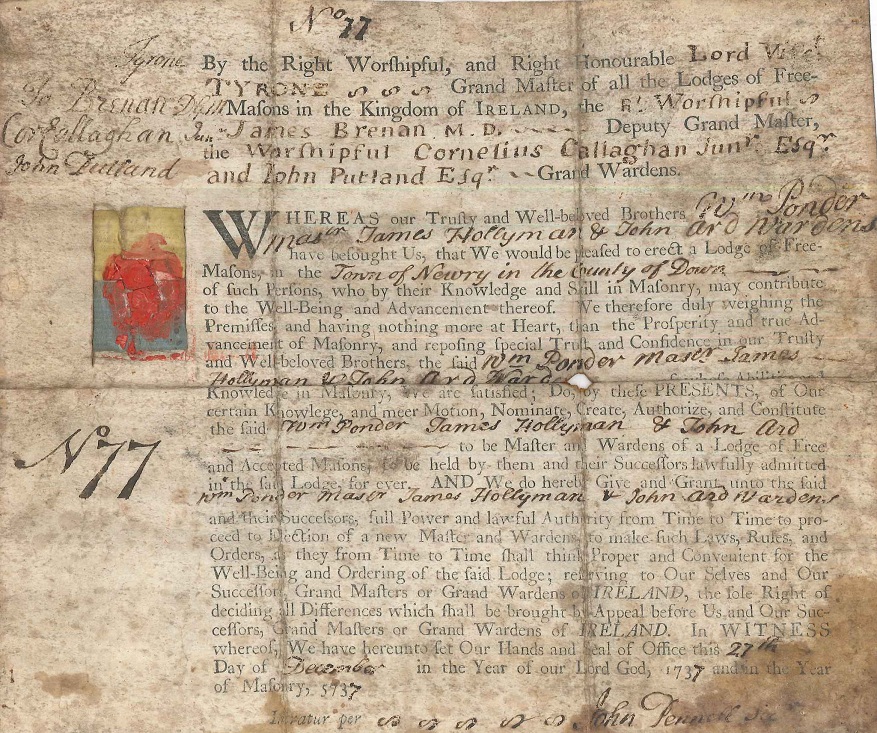 No 77
Tyrone
Jo Brenan D G M
Cor Callaghan Junr
John Putland
By the Right Worſhipful, and Right Honourable Lord Visct
TYRONE Grand Maſter of all the Lodges of Free-
Maſons in the Kingdom of IRELAND, the Rt Worshipful
James Brenan M. D. Deputy Grand Maſter,
the Worshipful Cornelius Callaghan Junr. Esqr
and Iohn Putland Esqr. Grand Wardens.
WHEREAS our Truſty and Well-beloved Brothers Wm Ponder
Masr James Hollyman & John Ard Wardens
have beſought Us, that We would be pleaſed to erect a Lodge of Free-
Maſons, in the Town of Newry in the County of Down
of ſuch Perſons, who by their Knowledge and Skill in Maſonry, may contribute
to the Well-Being and Advancement thereof. We therefore duly weighing the
Premiſſes, and having nothing more at Heart, than the Proſperity and true Ad-
vancement of Maſonry, and repoſing ſpecial Truſt, and Confidence in our Truſty
and Well-beloved Brothers, the ſaid Wm Ponder Masr James
Hollyman & John Ard Wardens
Knowledge in Maſonry, We are ſatisfied; Do, by theſe PRESENTS, of Our
certain Knowlege, and meer Motion, Nominate, Create, Authorize, and Conſtitute
the ſaid Wm Ponder James Hollyman & John Ard
No 77
to be Maſter and Wardens of a Lodge of Free
and Accepted Maſons, to be held by them and their Succeſſors lawfully admitted
in the ſaid Lodge, for ever. AND We do hereby Give and Grant unto the ſaid
Wm Ponder Masr James Hollyman & John Ard Wardens
and their Succeſſors, full Power and lawful Authority from Time to Time to pro-
ceed to Election of a new Maſter and Wardens, to make ſuch Laws, Rules, and
Orders, as they from Time to Time ſhall think Proper and Convenient for the
Well-Being and Ordering of the ſaid Lodge; reſerving to Our Selves and Our
Succeſſors, Grand Maſters or Grand Wardens of IRELAND, the ſole Right of
deciding all Differences which ſhall be brought by Appeal before Us and Our Suc-
ceſſors, Grand Maſters or Grand Wardens of IRELAND. In WITNESS
whereof, We have hereunto ſet Our Hands and Seal of Office this 27th
Day of December in the Year of our Lord God, 1737 and in the Year
of Maſonry, 5737
Intratur per John Pennell Secr